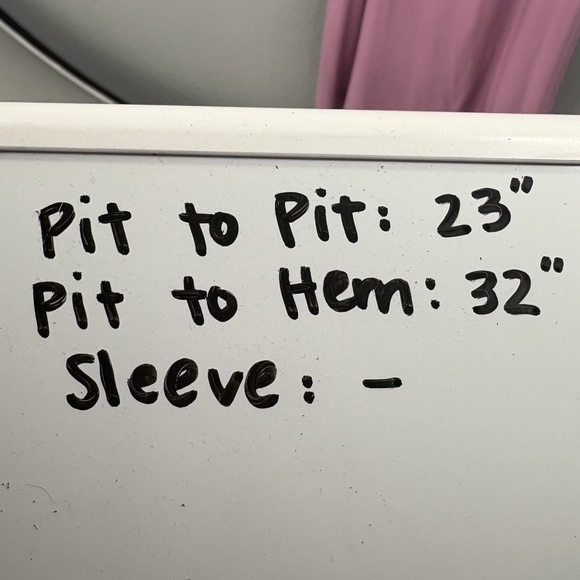 Pit to Pit: 23"
Pit to Hem: 32"
Sleeve: -